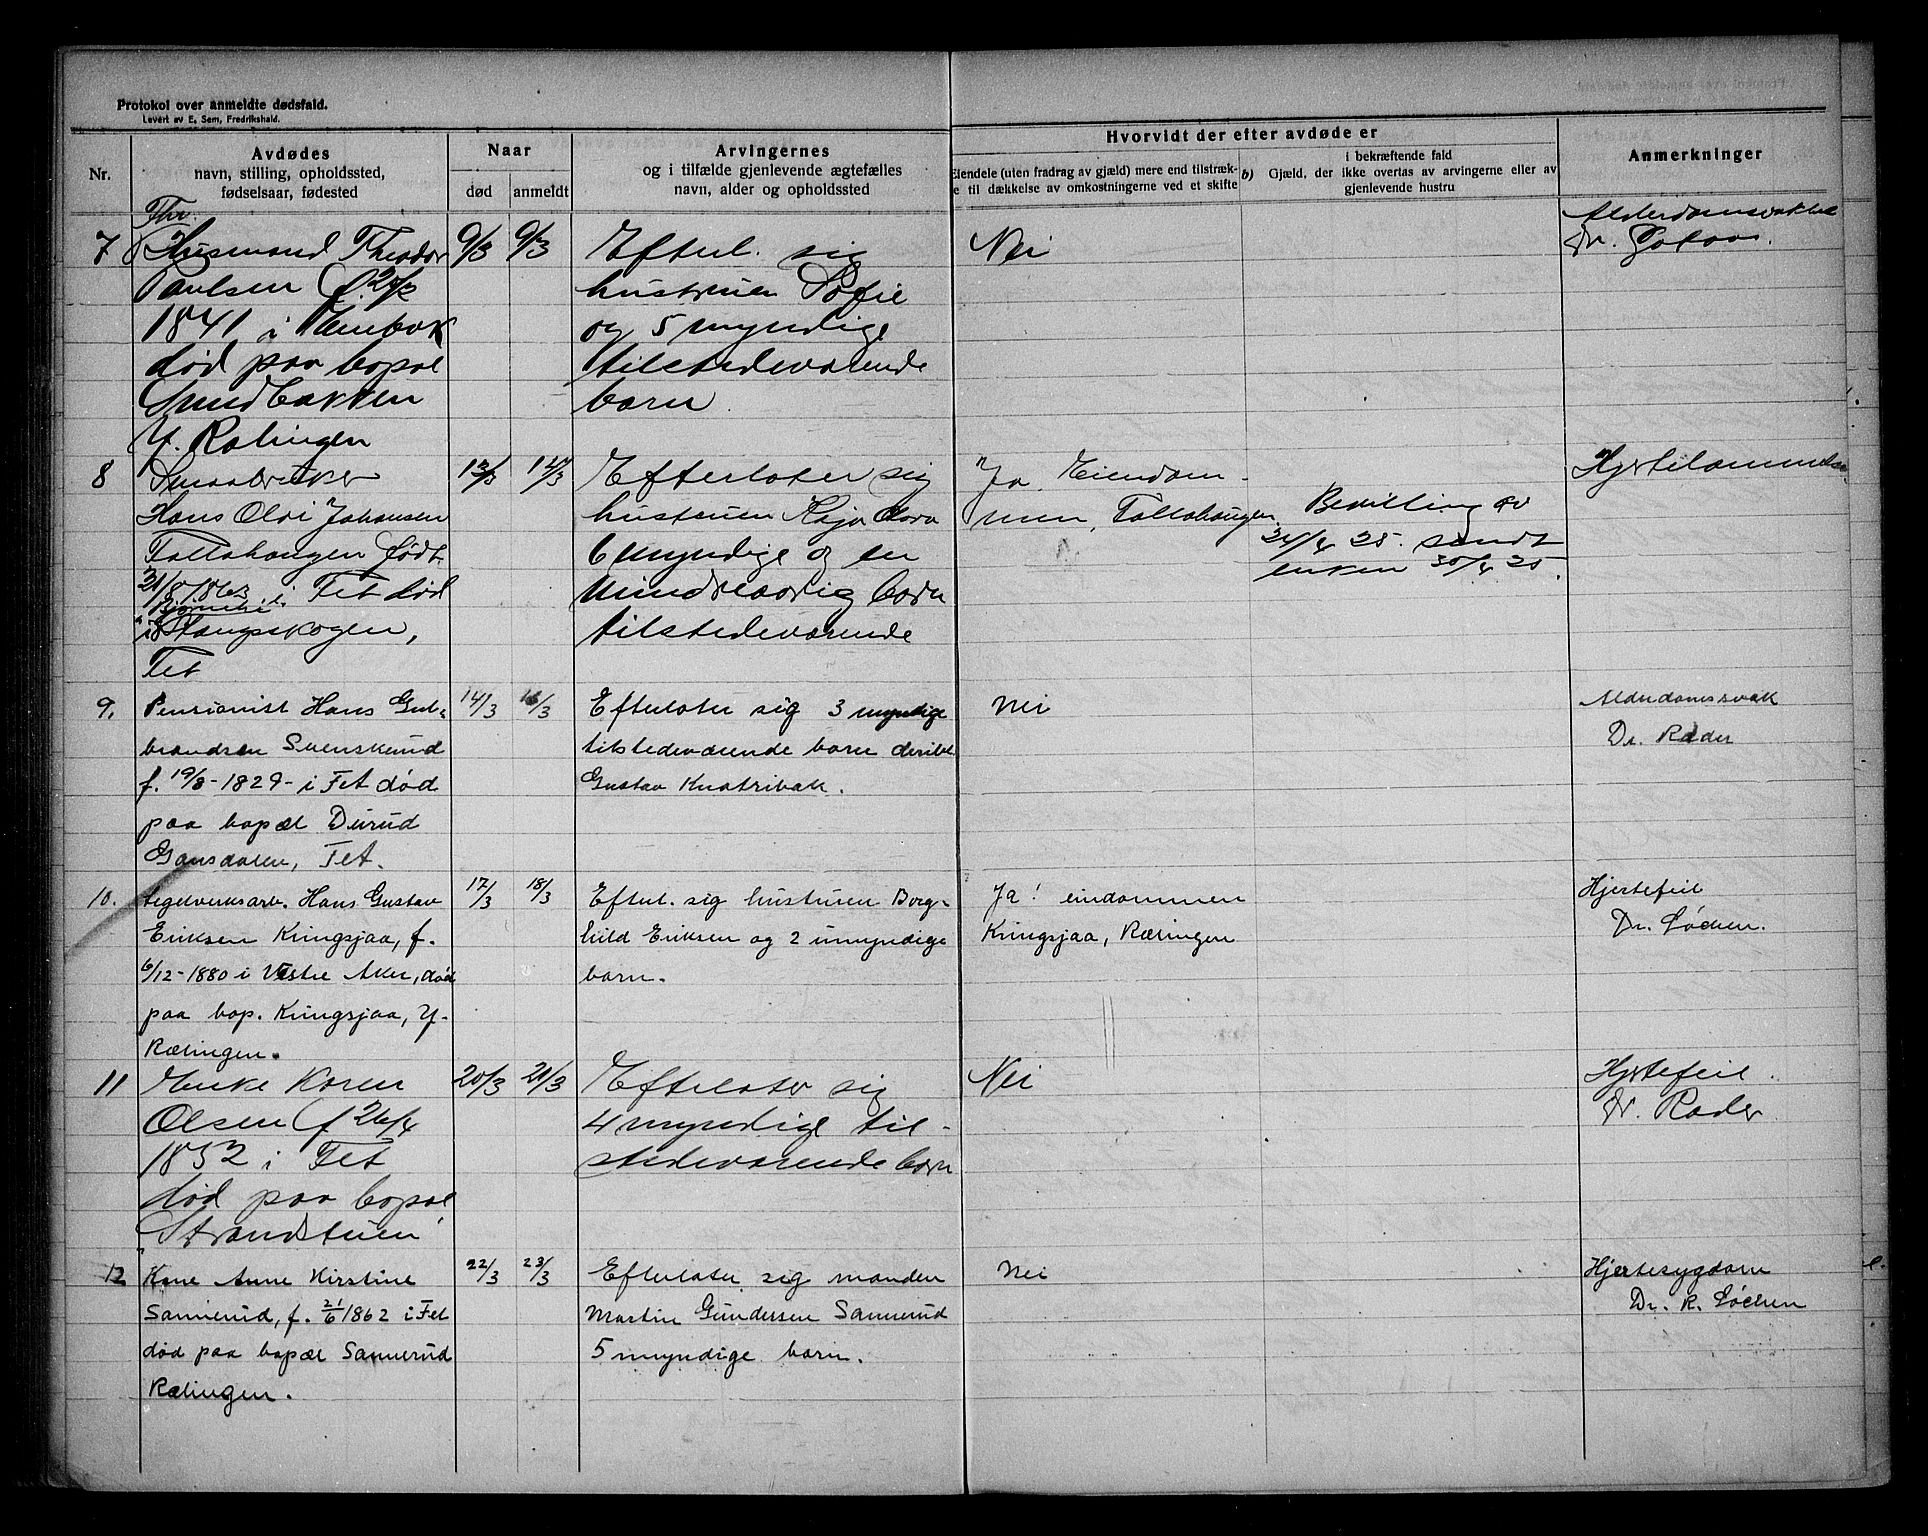 Protokol over anmeldte dødsfald.
Levert av E. Sem, Fredrikshald.
Nr.
Avdødes
navn, stilling, opholdssted,
fødselsaar, fødested
Naar
død
anmeldt
Arvingernes
og i tilfælde gjenlevende ægtefælles
navn, alder og opholdssted
Hvorvidt der efter avdøde er
Eiendele (uten fradrag av gjæld) mere end tilstræk-
e til dækkelse av omkostningerne ved et skifte
b)
i bekræftende fald
Gjæld, der ikke overtas av arvingerne eller av
gjenlevende hustru
Anmerkninger
7
Fhv.
Husmand Theodor
Paulsen f.
1841 i Enebak
død paa bopæl
Sundbakken
Y. Rælingen
9/3
9/3
Efterl. sig
hustruen Sofie
og 5 myndige
tilstedeværende
barn.
Nei
Dr.
8
Smaabruker
Hans Olai Johansen
Tollahaugen født
31/8 1863 i Fet død
i Stangskogen,
Fet
13/3
14/3
Efterlater sig
hustruen Kaja Dora
6 myndige og en
mindreaarig barn
tilstedeværende
Ja. Eiendom-
men, Tollahaugen.
Bevilling av
24/4 25. sendt
enken 30/4 25.
Hjertelammelse
9.
Pensionist Hans Gul-
brandsen Svenskerud
f. 19/8-1829- i Fet død
paa bopæl Durud
Gansdalen, Fet.
14/3
16/3
Efterlater sig 3 myndige
tilstedeværende barn deribl.
Gustav Knatribak.
Nei
Alderdomssvak
Dr. Rader
10.
Teglverksarb. Hans Gustav
Eriksen Kringsjaa, f.
6/12-1880 i Vestre Aker, død
paa bop. Kringsjaa, Y-
Rælingen.
17/3
18/3
Efterl. sig hustruen Borg-
hild Eriksen og 2 umyndige
barn.
Ja! eiendommen
Kringsjaa, Rælingen
Hjertefeil
Dr. Løchen.
11
Enke Karen
Olsen f. 26/4
1832 i Fet
død paa bopæl
Strandstuen
20/3
21/3
Efterlater sig
4 myndige til-
stedeværende barn
Nei
Hjertefeil.
Dr. Rader
12
Kone Anne Kirstine
Sannerud, f. 21/6 1862 i Fet
død paa bopæl Sannerud
Rælingen.
22/3
23/3
Efterlater sig manden
Martin Gundersen Sannerud
5 myndige barn.
Nei
Hjertesygdom
Dr. R. Løchen